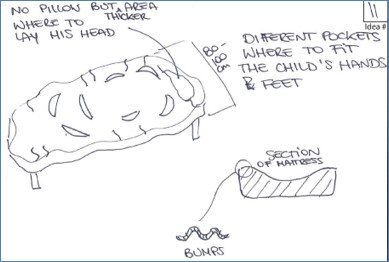 NO PILLOW BUT AREA THICKER
WHERE TO
LAY HIS HEAD
80-
100
cm
11
Idea #
DIFFERENT POCKETS
WHERE TO FIT
THE CHILD'S HANDS
& FEET
SECTION
OF MATRESS
BUMPS